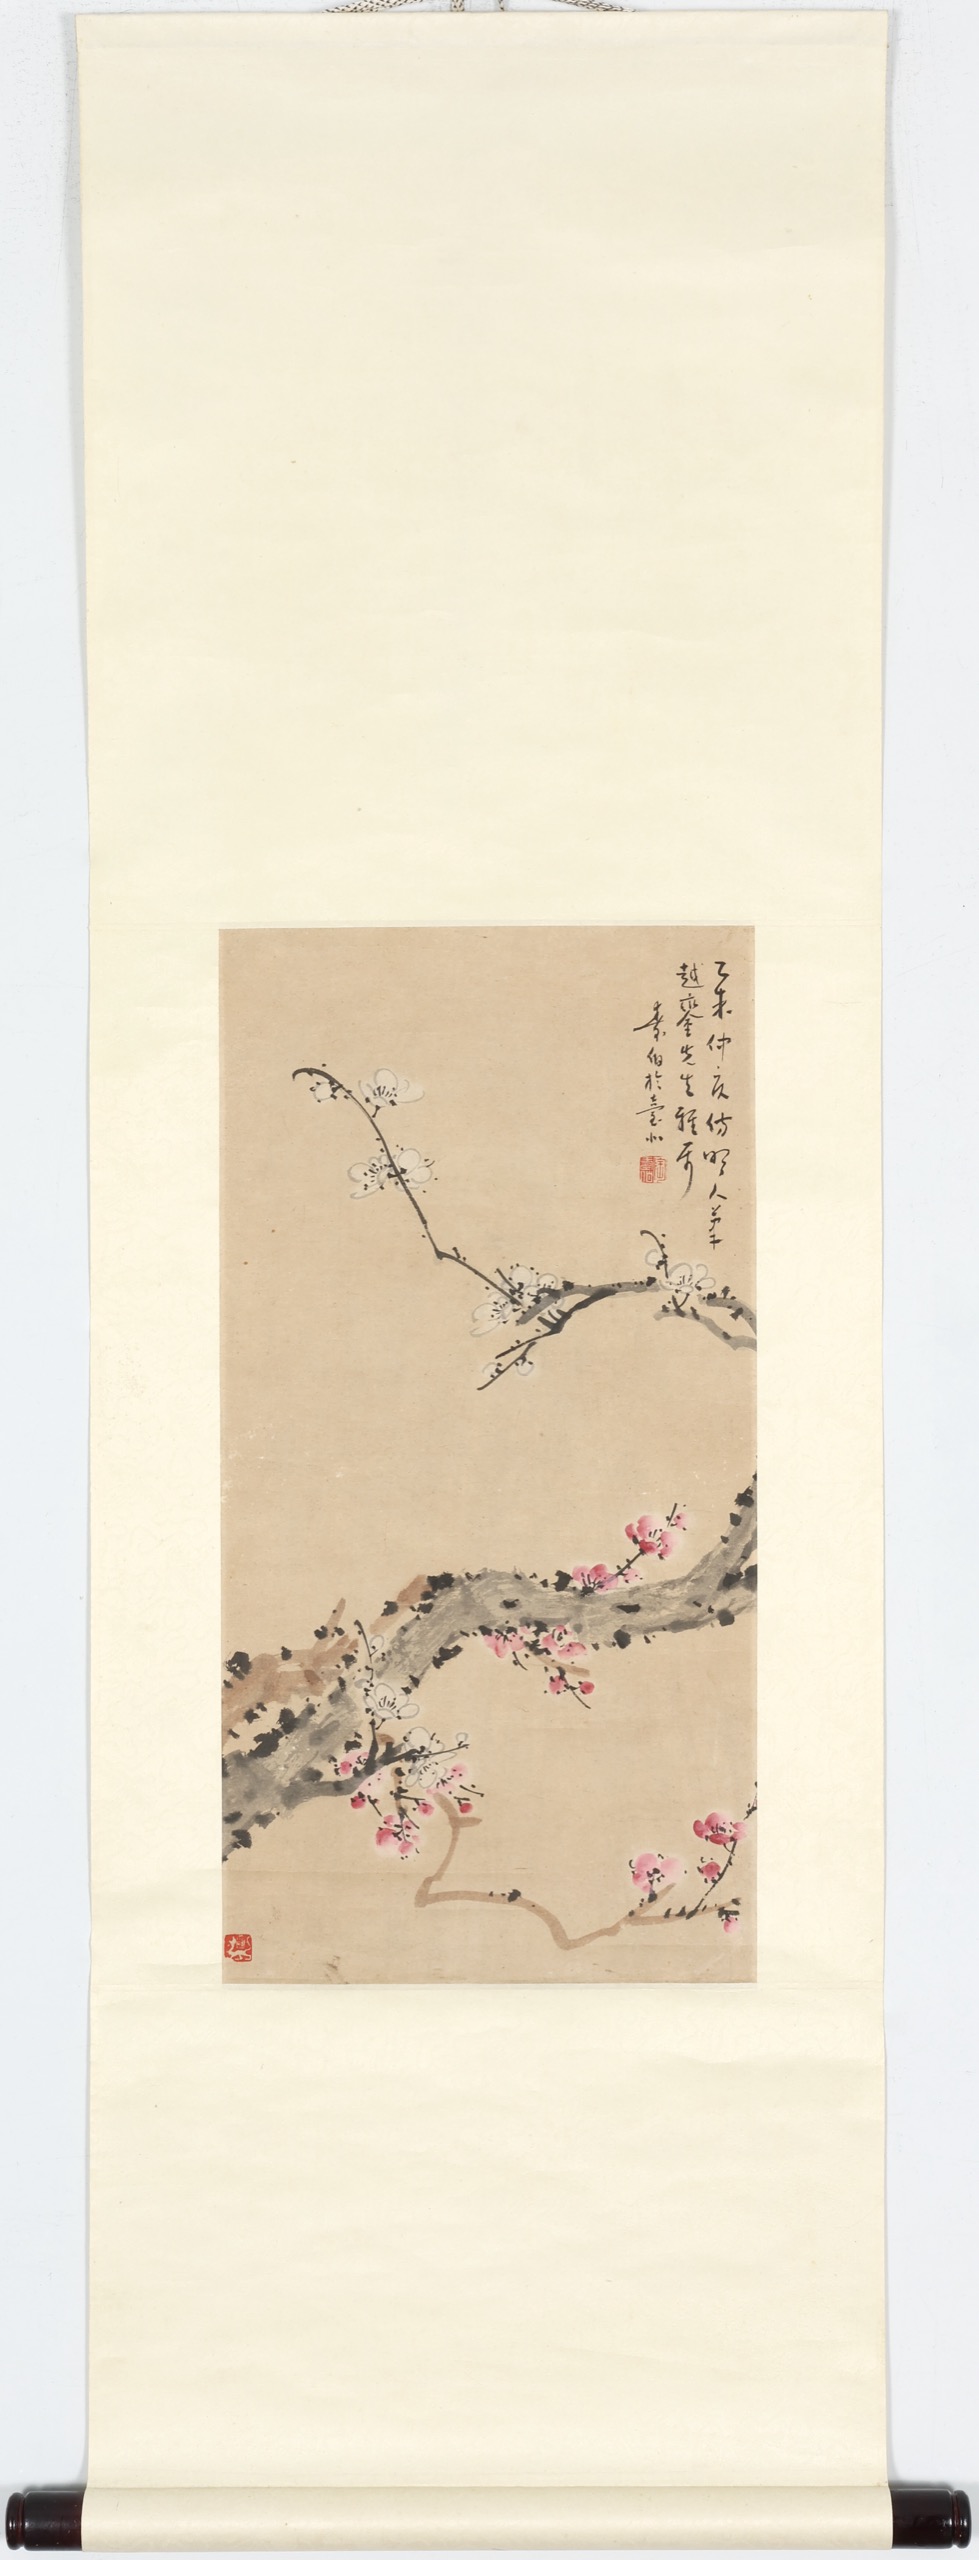 乙未仲夏仿明人筆
越鑾先生雅屬
素伯於臺北